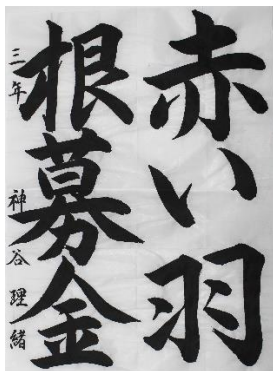 赤い羽
根募金
三年 神谷 理緒